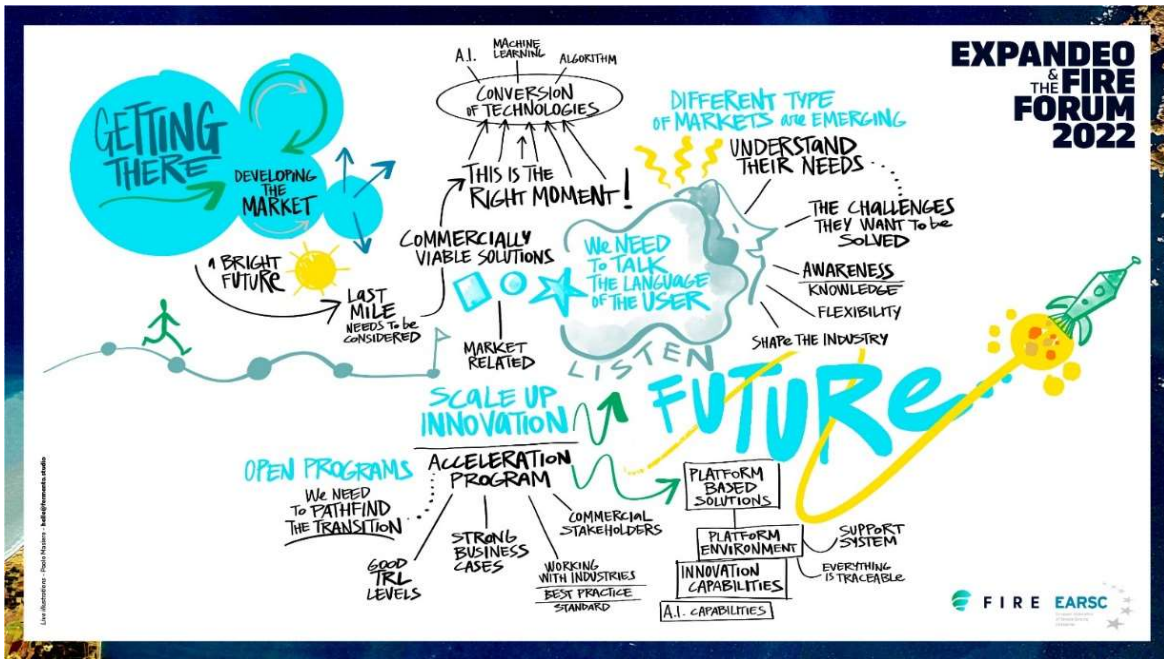 EXPANDEO
& THE FIRE
FORUM
2022
GETTING
THERE
DEVELOPING
THE
MARKET
A BRIGHT
FUTURE
LAST
MILE
NEEDS TO be
CONSIDERED
A.I.
MACHINE
LEARNING
ALGORITHM
CONVERSION
OF TECHNOLOGIES
THIS IS THE
RIGHT MOMENT!
COMMERCIALLY
VIABLE SOLUTIONS
MARKET
RELATED
DIFFERENT TYPE
OF MARKETS are EMERGING
UNDERSTAND
THEIR NEEDS
THE CHALLENGES
THEY WANT To be
SOLVED
AWARENESS
KNOWLEDGE
FLEXIBILITY
SHAPE THE INDUSTRY
We NEED
To TALK
THE LANGUAGE
OF THE USER
LISTEN
FUTURe
SCALE UP
INNOVATION
OPEN PROGRAMS
ACCELERATION
PROGRAM
We NEED
To PATHFIND
THE TRANSITION
GOOD
TRL
LEVELS
STRONG
BUSINESS
CASES
WORKING
WITH INDUSTRIES
BEST PRACTICE
STANDARD
COMMERCIAL
STAKEHOLDERS
PLATFORM
BASED
SOLUTIONS
PLATFORM
ENVIRONMENT
INNOVATION
CAPABILITIES
A.I. CAPABILITIES
SUPPORT
SYSTEM
EVERYTHING
IS TRACEABLE
Live illustrations - Paolo Masiero - hello@fermento.studio
FIRE EARSC